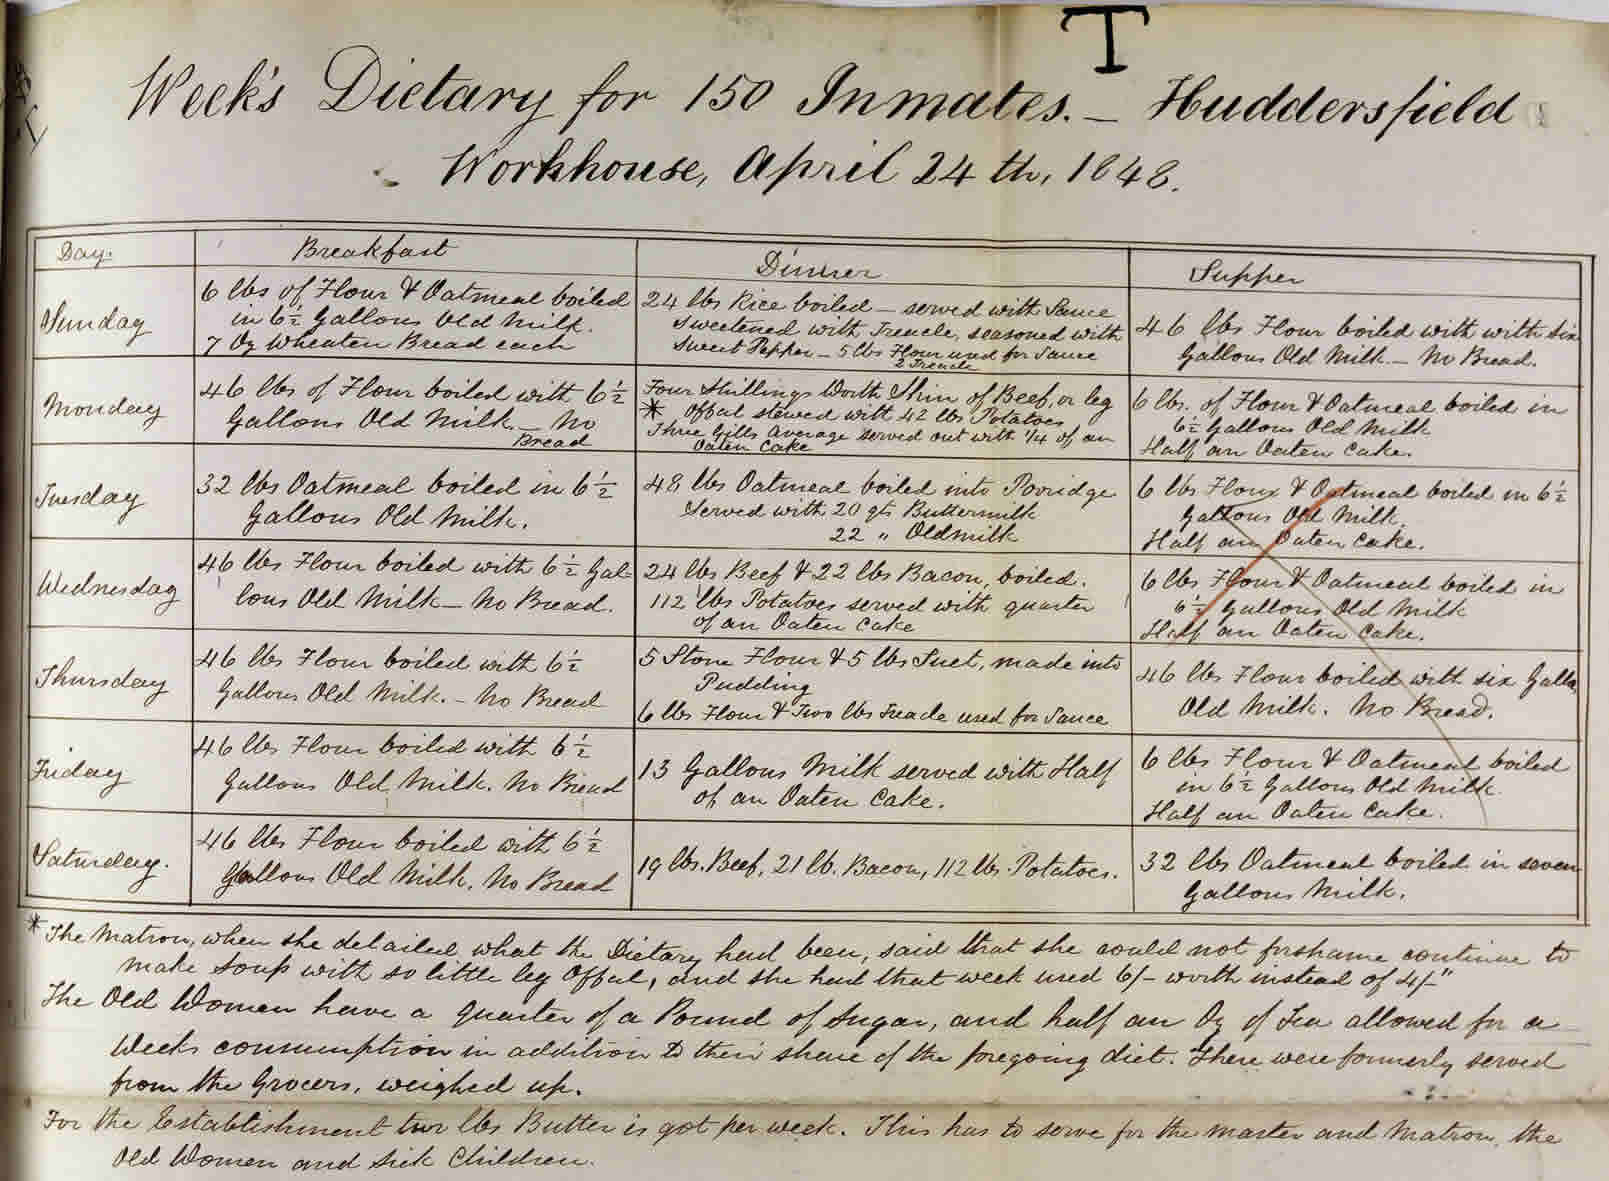 T
Week's Dietary for 150 Inmates. – Huddersfield
Workhouse, April 24th, 1848.
Day.
Breakfast
Dinner
Supper
Sunday
6 lbs of Flour & Oatmeal boiled
in 6½ Gallons Old Milk.
7 Oz Wheaten Bread each
24 lbs Rice boiled – served with Sauce
Sweetened with Treacle, seasoned with
Sweet Pepper – 5 lbs Flour used for Sauce
2 Treacle
46 lbs Flour boiled with with six
Gallons Old Milk – No Bread.
Monday
46 lbs of Flour boiled with 6½
Gallons Old Milk. – No
Bread
Four Shillings Worth Shin of Beef, or leg
* Offal stewed with 42 lbs Potatoes
Three Gills Average served out with 1/4 of an
Oaten Cake
6 lbs. of Flour & Oatmeal boiled in
6½ Gallons Old Milk
Half an Oaten Cake.
Tuesday
32 lbs Oatmeal boiled in 6½
Gallons Old Milk.
48 lbs Oatmeal boiled into Porridge
Served with 20 qts Buttermilk
22 " Oldmilk
6 lbs Flour & Oatmeal boiled in 6½
Gallons Old Milk.
Half an Oaten Cake.
Wednesday
46 lbs Flour boiled with 6½ Gal-
lons Old Milk – No Bread.
24 lbs Beef & 22 lbs Bacon, boiled.
112 lbs Potatoes served with quarter
of an Oaten Cake
6 lbs Flour & Oatmeal boiled in
6½ Gallons Old Milk
Half an Oaten Cake.
Thursday
46 lbs Flour boiled with 6½
Gallons Old Milk. – No Bread
5 Stone Flour & 5 lbs Suet, made into
Pudding
6 lbs Flour & Two lbs Treacle used for Sauce
46 lbs Flour boiled with six Gallons
Old Milk. No Bread.
Friday
46 lbs Flour boiled with 6½
Gallons Old Milk. No Bread
13 Gallons Milk served with Half
of an Oaten Cake.
6 lbs Flour & Oatmeal boiled
in 6½ Gallons Old Milk.
Half an Oaten Cake.
Saturday.
46 lbs Flour boiled with 6½
Gallons Old Milk. No Bread
19 lbs. Beef, 21 lb. Bacon, 112 lbs. Potatoes.
32 lbs Oatmeal boiled in seven
Gallons Milk.
* The Matron, when she detailed what the Dietary had been, said that she could not forshame continue to
make Soup with so little leg Offal, and she had that week used 6/- worth instead of 4/-"
The Old Women have a quarter of a Pound of Sugar, and half an Oz of Tea allowed for a
Weeks consumption in addition to their share of the foregoing diet. There were formerly served
from the Grocers, weighed up.
For the Establishment two lbs Butter is got per week. This has to serve for the Master and Matron, the
Old Women and Sick Children.